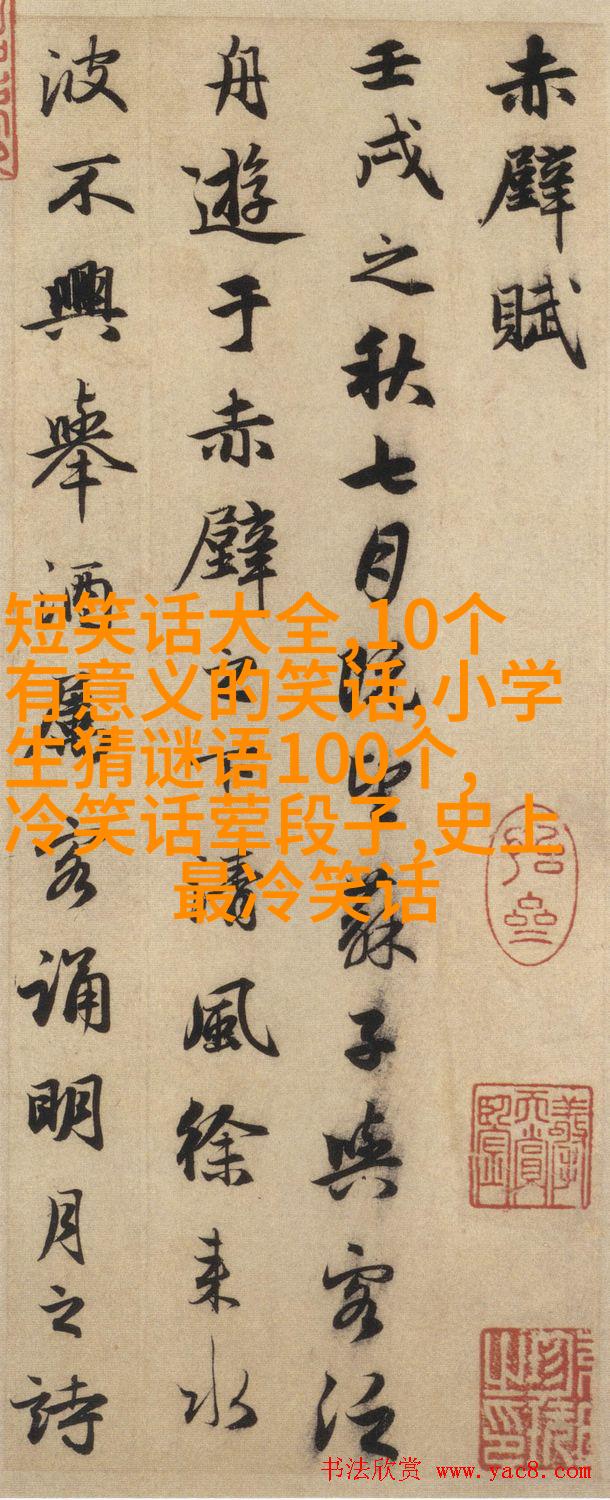 赤壁賦
壬戌之秋七月既望蘇子與客泛
舟遊于赤壁之下清風徐来水
波不興舉酒屬客誦明月之詩
短笑话大全,10个
有意义的笑话,小学
生猜谜语100个,
冷笑话荤段子,史上
最冷笑话
书法欣赏 www.yac8.com